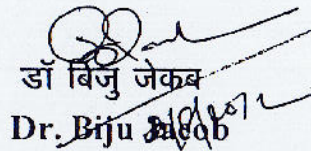 डॉ बिजु जेकब
Dr. Biju Jacob